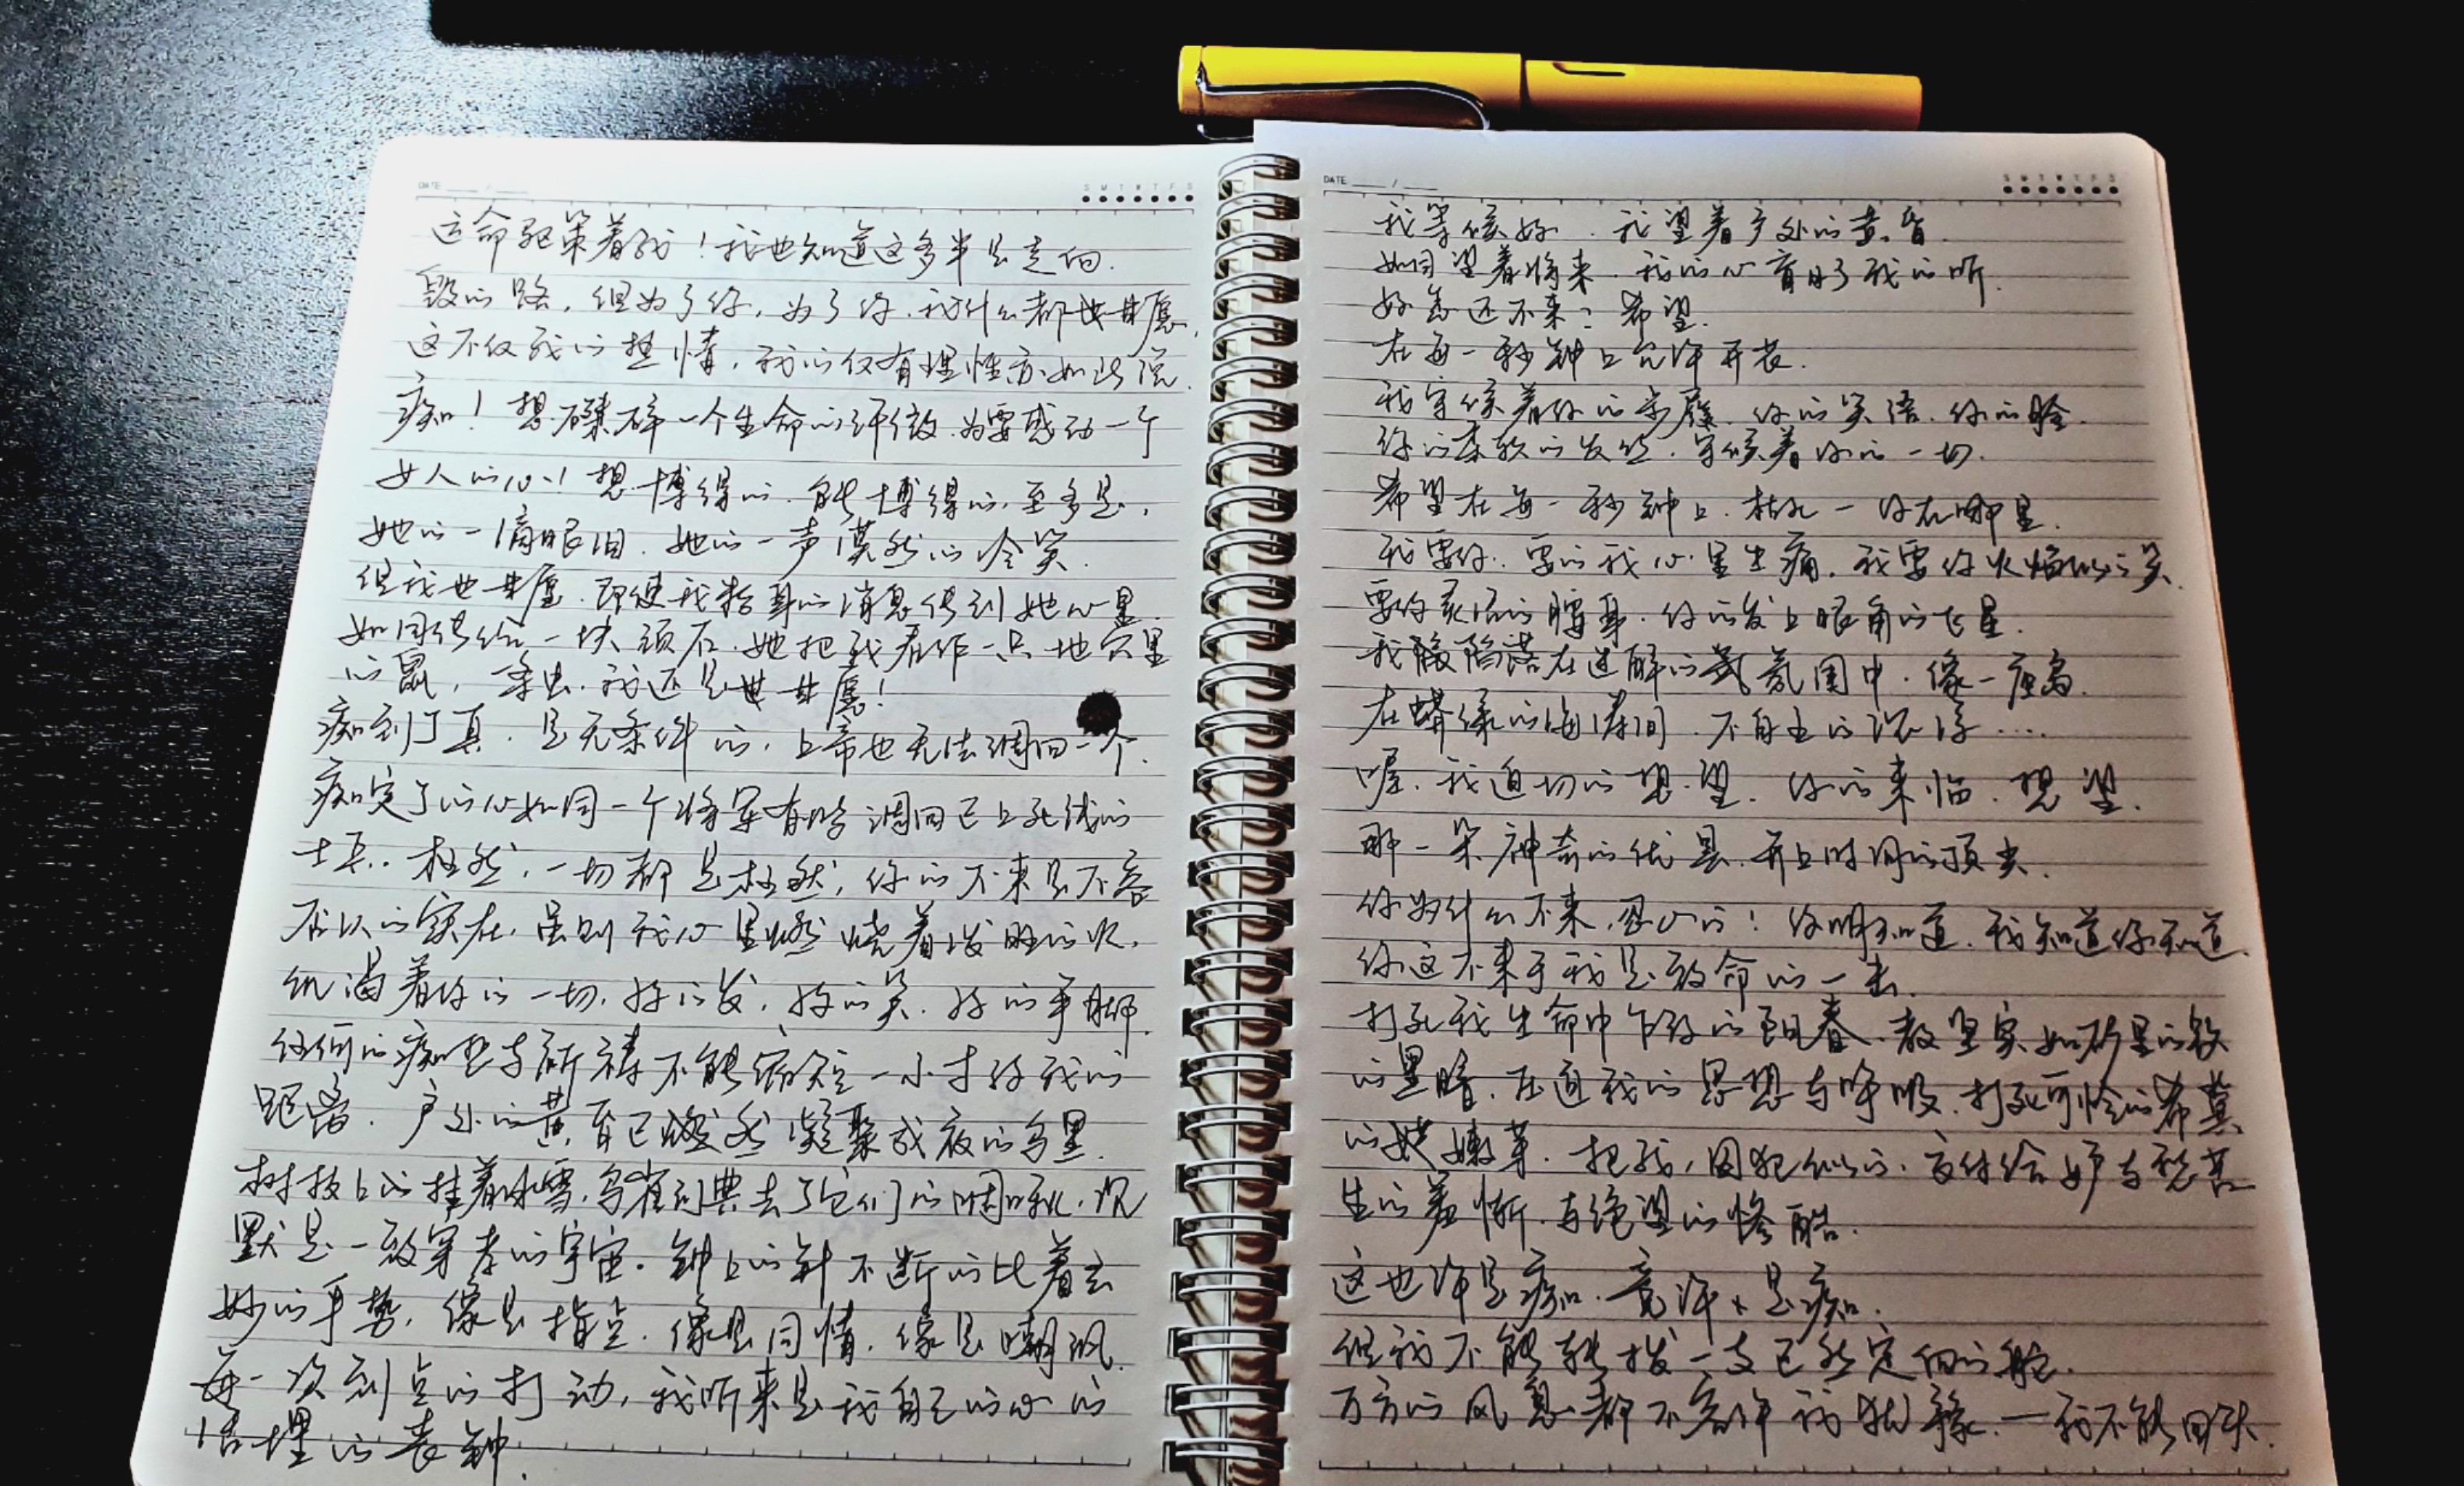 DATE
S M T W T F S
运命驱策着我！我也知道这多半是走向
毁的路，但为了你，为了你，我什么都甘愿，
这不仅我的热情，我的仅有理性亦如此说
痴！想磔碎一个生命的纤微，为要感动一个
女人的心！想博得的，能博得的，至多是，
她的一滴眼泪，她的一声漠然的冷笑
但我也甘愿，即使我粉身的消息传到她心里
如同传给一块顽石，她把我看作一只地穴里
的鼠，一条虫，我还是甘愿！
痴到了真，是无条件的，上帝也无法调回一个
痴定了的心如同一个将军有时调回已上死线的
士兵。枉然，一切都是枉然，你的不来是不容
否认的实在，虽则我心里燃烧着泼旺的火，
饥渴着你的一切，你的发，你的笑，你的手脚
任何的痴想与祈祷不能缩短一小寸你我的
距离，户外的黄昏已然凝聚成夜的乌黑
树枝上的挂着冰雪，鸟雀们典去了它们的啁啾，沉
默是一致穿孝的宇宙。钟上的针不断的比着玄
妙的手势，像是指点，像是同情，像是嘲讽
每一次到点的打动，我听来是我自己的心的
活埋的丧钟
DATE
S M T W T F S
我等候你，我望着户外的黄昏
如同望着将来，我的心盲了我的听
你怎还不来？希望
在每一秒钟上允许开花
我守候着你的步履，你的笑语，你的脸
你的柔软的发丝，守候着你的一切
希望在每一秒钟上，枯死一你在哪里
我要你，要的我心里生痛，我要你火焰似的笑
要你灵活的腰身，你的发上眼角的飞星
我陷落在迷醉的氛围中，像一座岛
在蟒绿的海涛间，不自主的沉浮....
喔，我迫切的想望，你的来临，想望
那一朵神奇的优昙，开上时间的顶尖
你为什么不来，忍心的！你明知道，我知道你知道
你这不来于我是致命的一击
打死我生命中乍放的阳春，教坚实如矿里的铁
的黑暗，压迫我的思想与呼吸，打死可怜的希冀
的嫩芽，把我，囚犯似的，交付给妒与愁苦
生的羞惭，与绝望的惨酷
这也许是痴，竟许是痴
但我不能转拨一支已然定向的舵
万方的风息都不容许我犹豫，一我不能回头